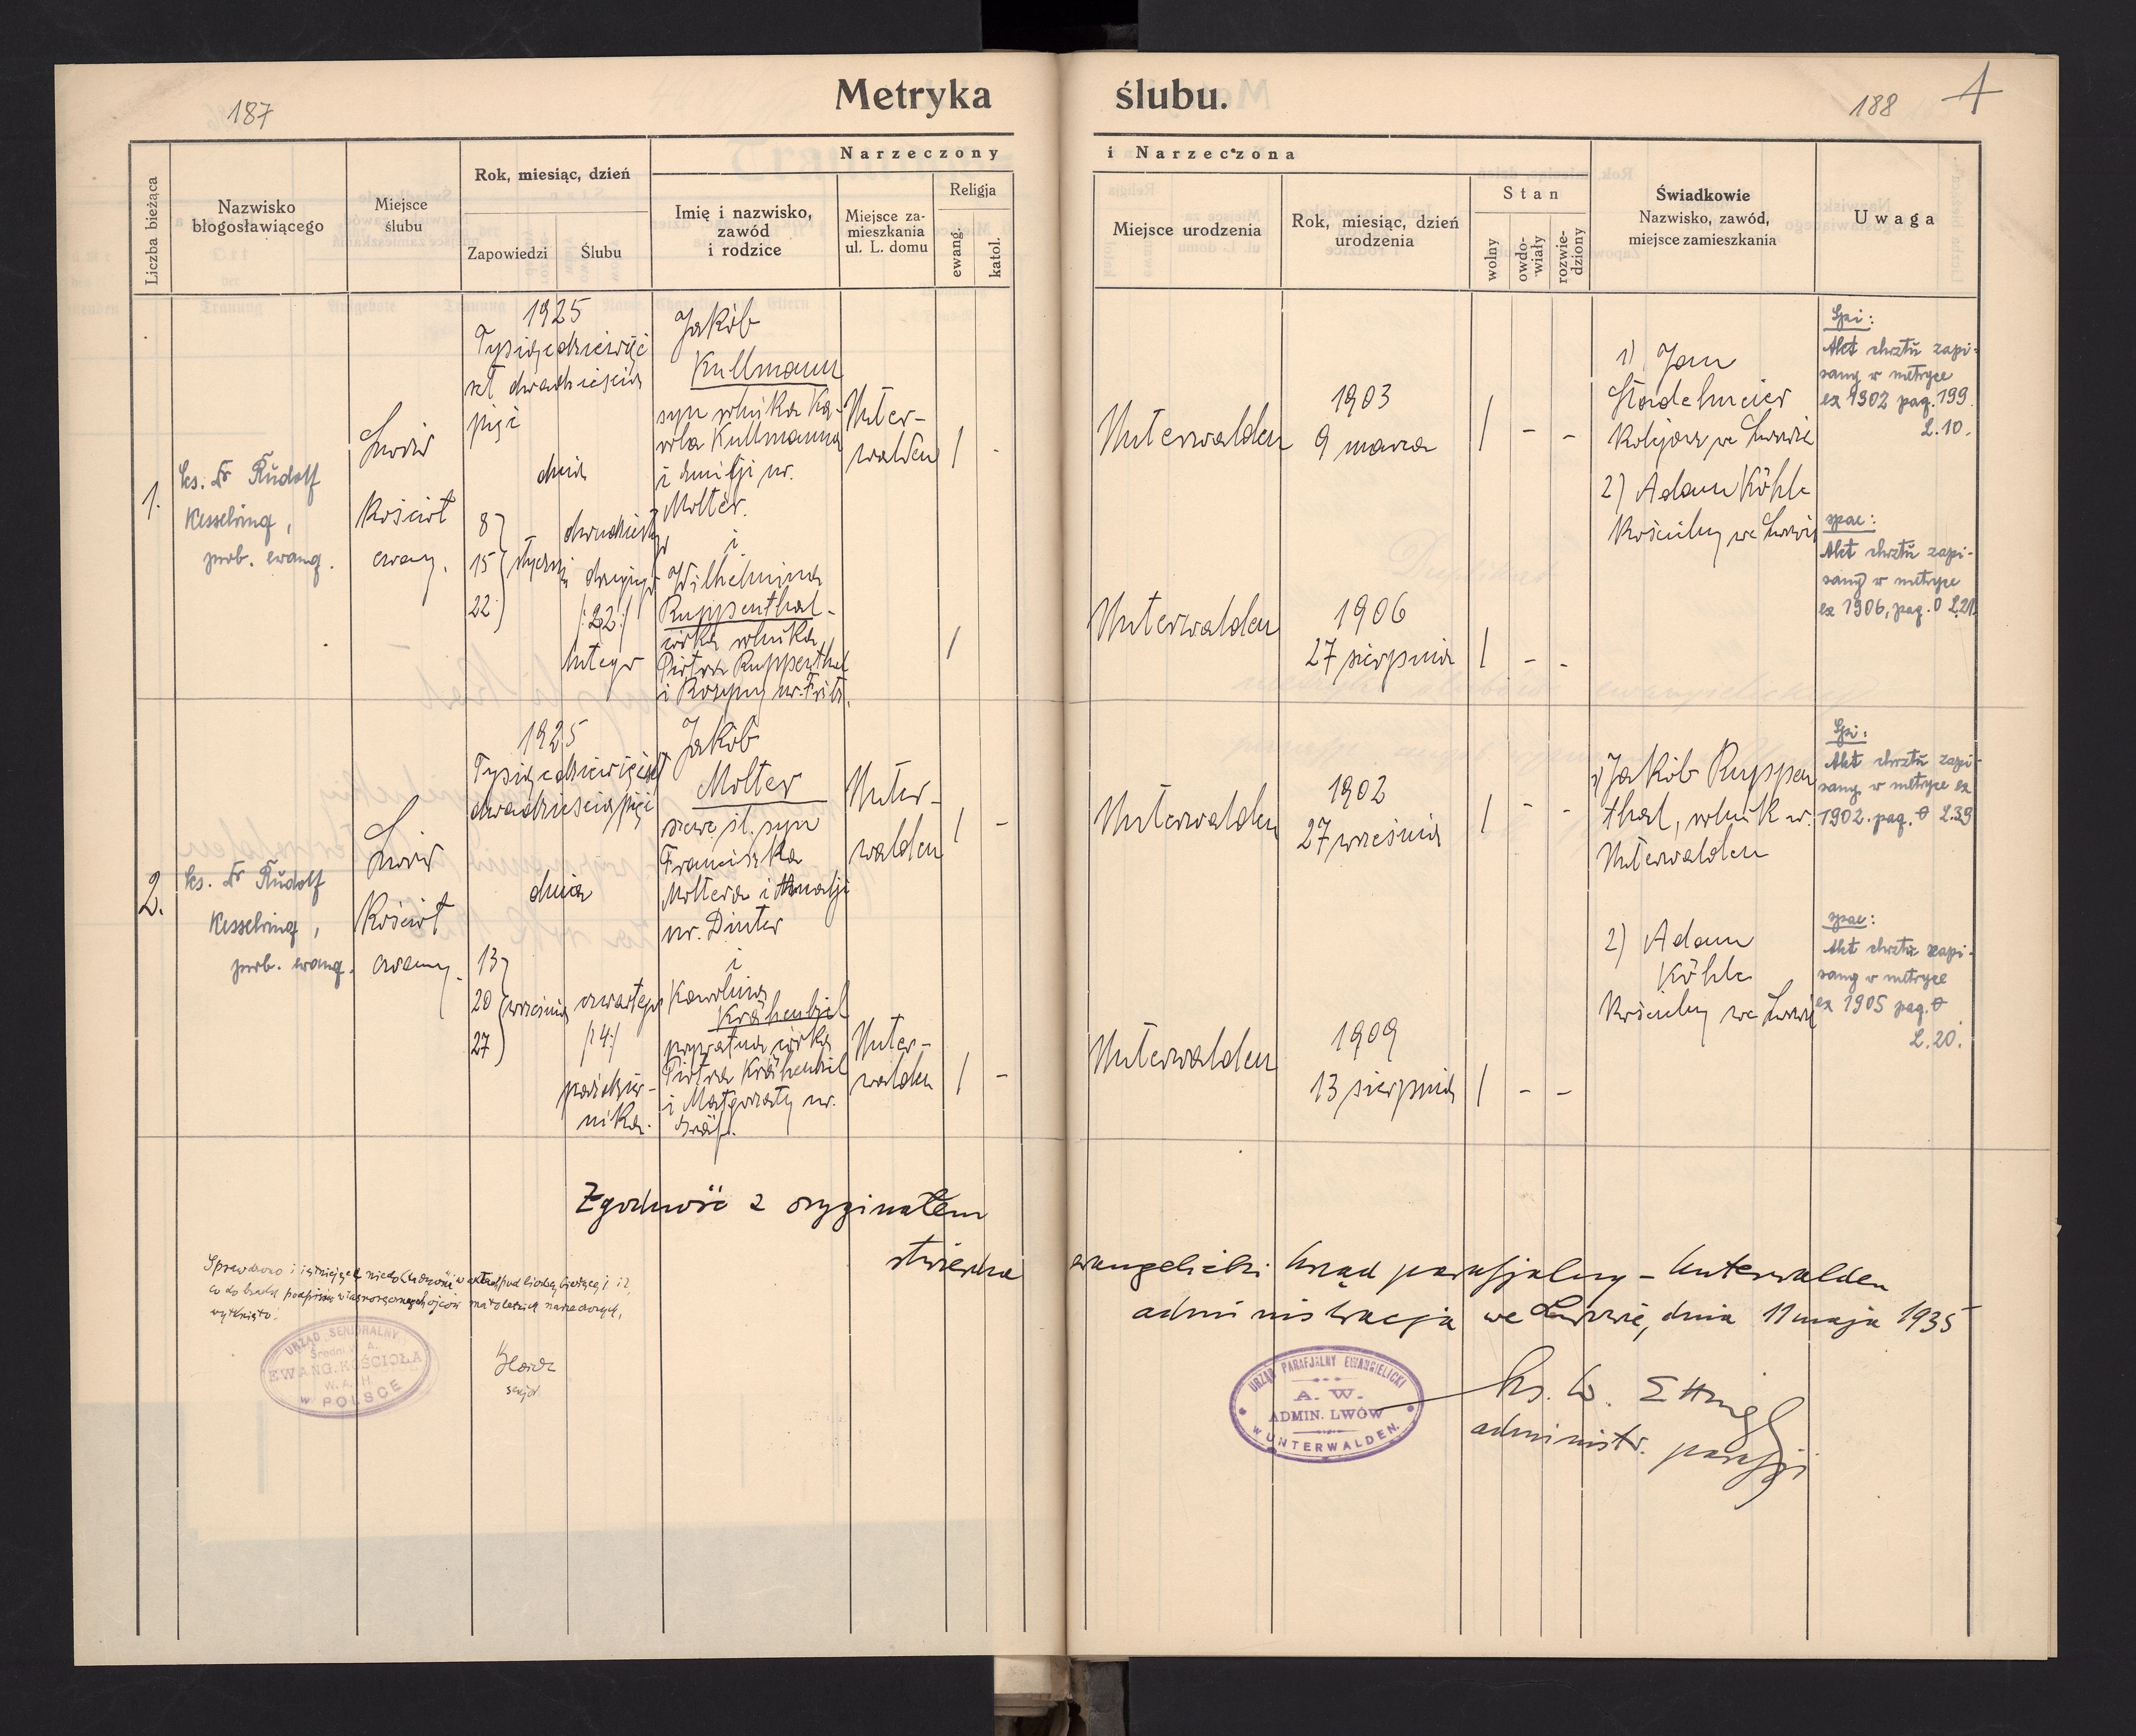 187
Metryka ślubu.
188
1
Liczba bieżąca
Nazwisko
błogosławiącego
Miejsce
ślubu
Rok, miesiąc, dzień
Zapowiedzi
Ślubu
Narzeczony
i Narzeczona
Imię i nazwisko,
zawód
i rodzice
Miejsce za-
mieszkania
ul. L. domu
Religja
ewang.
katol.
Miejsce urodzenia
Rok, miesiąc, dzień
urodzenia
Stan
wolny
owdo-
wiały
rozwie-
dziony
Świadkowie
Nazwisko, zawód,
miejsce zamieszkania
Uwaga
1.
ks. Dr Rudolf
Kesselring,
prob. ewang.
Lwów
Kościół
ewang.
1925
Tysiącdziewięć
set dwadzieścia
pięć
dnia
8
15 stycznia
22
dwudziestego
drugiego
/:22:/
lutego
Jakób
Kullmann
syn rolnika Ka-
rola Kullmanna
i Emilji ur.
Molter.
i
Wilhelmina
Ruppenthal -
córka rolnika
Piotra Ruppenthal
i Rozyny ur. Fritz.
Unter-
walden
/ -
/
Unterwalden
1903
9 marca
/ - -
Unterwalden
1906
27 sierpnia
/ - -
1) Jan
Stadelmeier
Kolejarz we Lwowie
2) Adam Köhle
Kościelny we Lwowie
Spi:
Akt chrztu zapi-
sany w metryce
ex 1902 pag. 199.
L. 10.
spae:
Akt chrztu zapi-
sany w metryce
ex 1906, pag. 0 L.21.
2.
ks. Dr Rudolf
Kesselring,
prob. ewang.
Lwów
Kościół
ewang.
1925
Tysiącdziewięćset
dwadzieściapięć
dnia
13
20 września
27
czwartego
/:4:/
paździer-
nika.
Jakób
Molter
syn
Franciszka
Moltera i Amalji
ur. Dinter
i
Karolina
Krähenbiel
prywatna córka
Piotra Krähenbiel
i Małgorzaty ur.
Gräf.
Unter-
walden
/ -
Unter-
walden
/ -
Unterwalden
1902
27 września
/ - -
Unterwalden
1909
13 sierpnia
/ - -
1) Jakób Ruppen
thal, rolnik w.
Unterwalden
2) Adam
Köhle
Kościelny we Lwowie
Spi:
Akt chrztu zapi-
sany w metryce ex
1902. pag. 0 L.39
spae:
Akt chrztu zapi-
sany w metryce
ex 1905 pag. 0
L. 20.
Zgodność z oryginałem
stwierdza ewangelicki Urząd parafjalny - Unterwalden
administracja we Lwowie, dnia 11 maja 1935
Sprawdzono i istniejące niedokładności w aktach pod liczbą bieżącą 1 i 2,
co do braku podpisów własnoręcznych ojców małoletnich narzeczonych,
wytknięto.
URZĄD SENIORALNY
EWANG. KOŚCIOŁA
W. A. I H.
W POLSCE
senjor
URZĄD PARAFJALNY EWANGIELICKI
A. W.
ADMIN. LWÓW
W UNTERWALDEN.
ks. W. Ettinger
administr. parafji